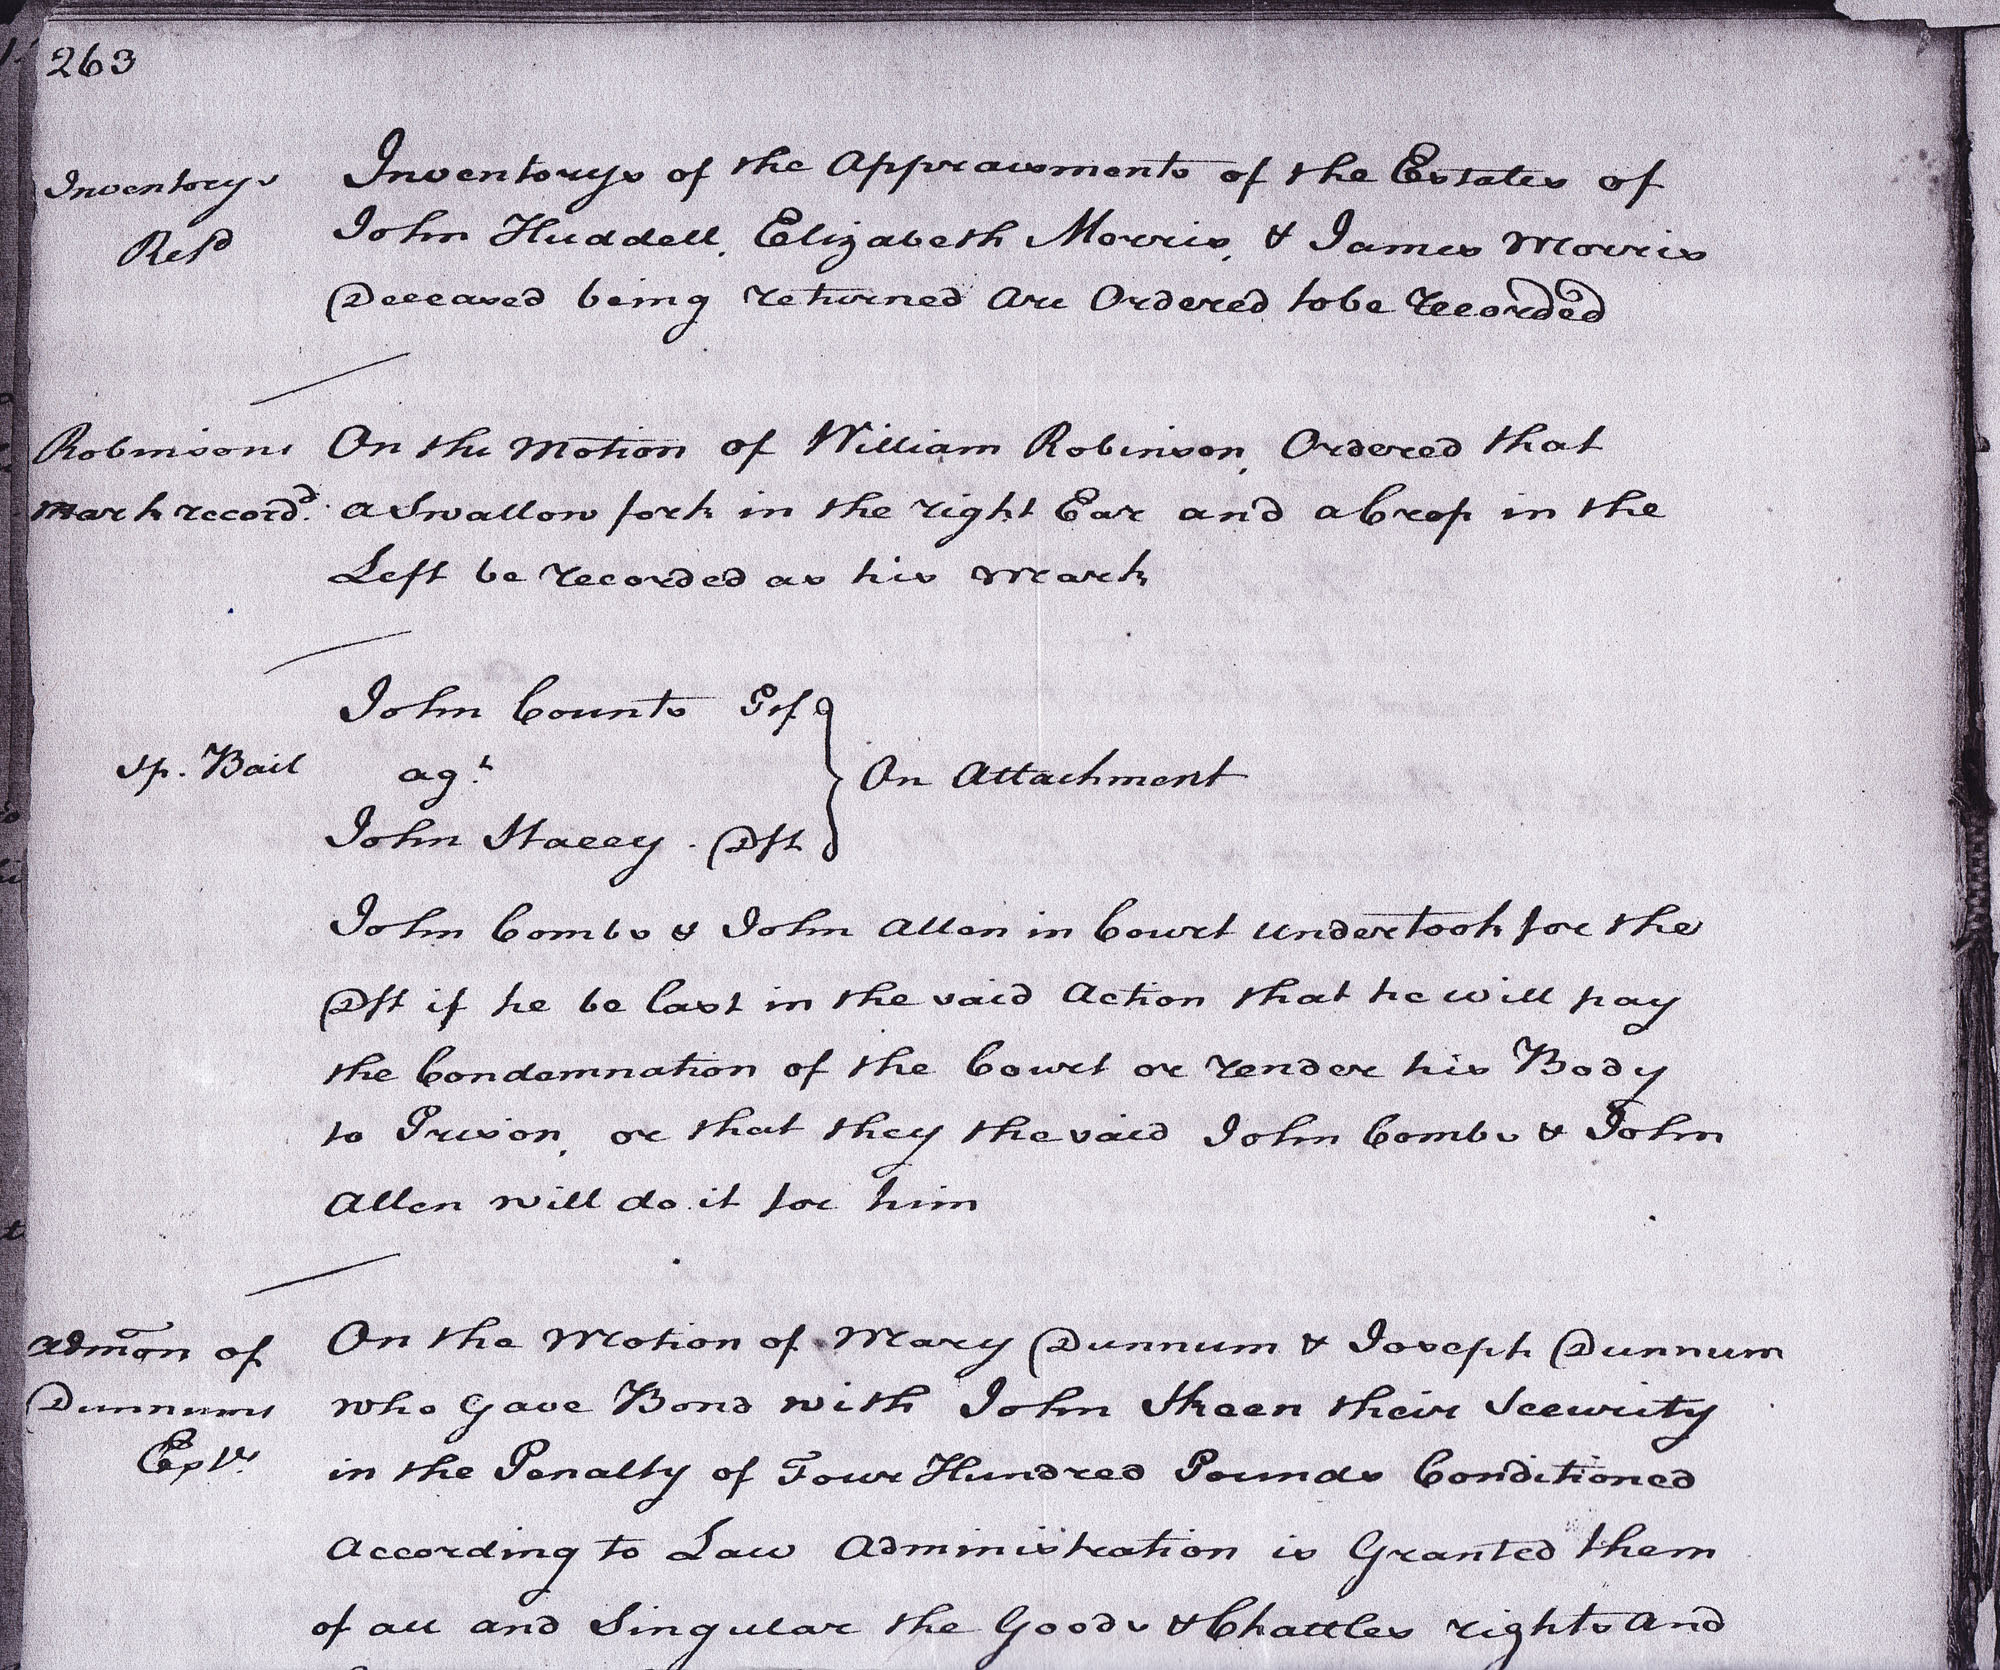 263
Inventorys Inventorys of the Appraisments of the Estates of
Retd John Huddell, Elizabeth Morris, & James Morris
Deceased being returned are Ordered tobe recorded
Robinsons On the Motion of William Robinson, Ordered that
Mark recordd. a Swallow fork in the right Ear and a Crop in the
Left be recorded as his Mark
John Counts Plf
sp. Bail agt On Attachment
John Stacey. Dft
John Combs & John Allen in Court undertook for the
Dft if he be Cast in the said Action that he will pay
the Condemnation of the Court or render his Body
to Prison, or that they the said John Combs & John
Allen will do it for him
Admon of On the Motion of Mary Dunnum & Joseph Dunnum
Dunnums who Gave Bond with John Skeen their Security
in the Penalty of Four Hundred Pounds Conditioned
According to Law Administration is Granted them
of all and Singular the Goods & Chattles rights and